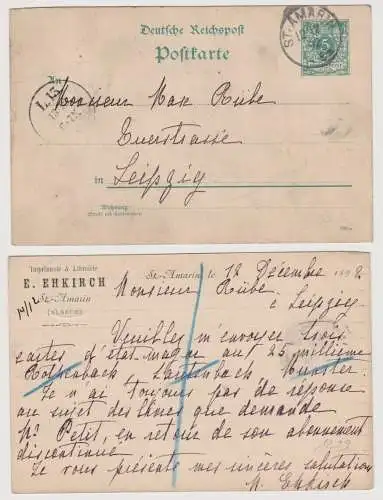 Deutsche Reichspost
Postkarte
ST. AMARIN
5
An
Monsieur Max Rübe
Querstrasse
in Leipzig
Wohnung
E. EHKIRCH
Imprimerie & Librairie
St-Amarin
(ALSACE)
14/12
St-Amarin le 12 Décembre
Monsieur Rübe.
à Leipzig
Veuillez m'envoyer trois
cartes d'état-major au 25 millième
Rothenbach Lautenbach Munster.
Je n'ai toujours pas de réponse
au sujet des que demande
Mr Petit, en retour de son abonnement
discontinué
Je vous présente mes sincères salutations
Ehkirch